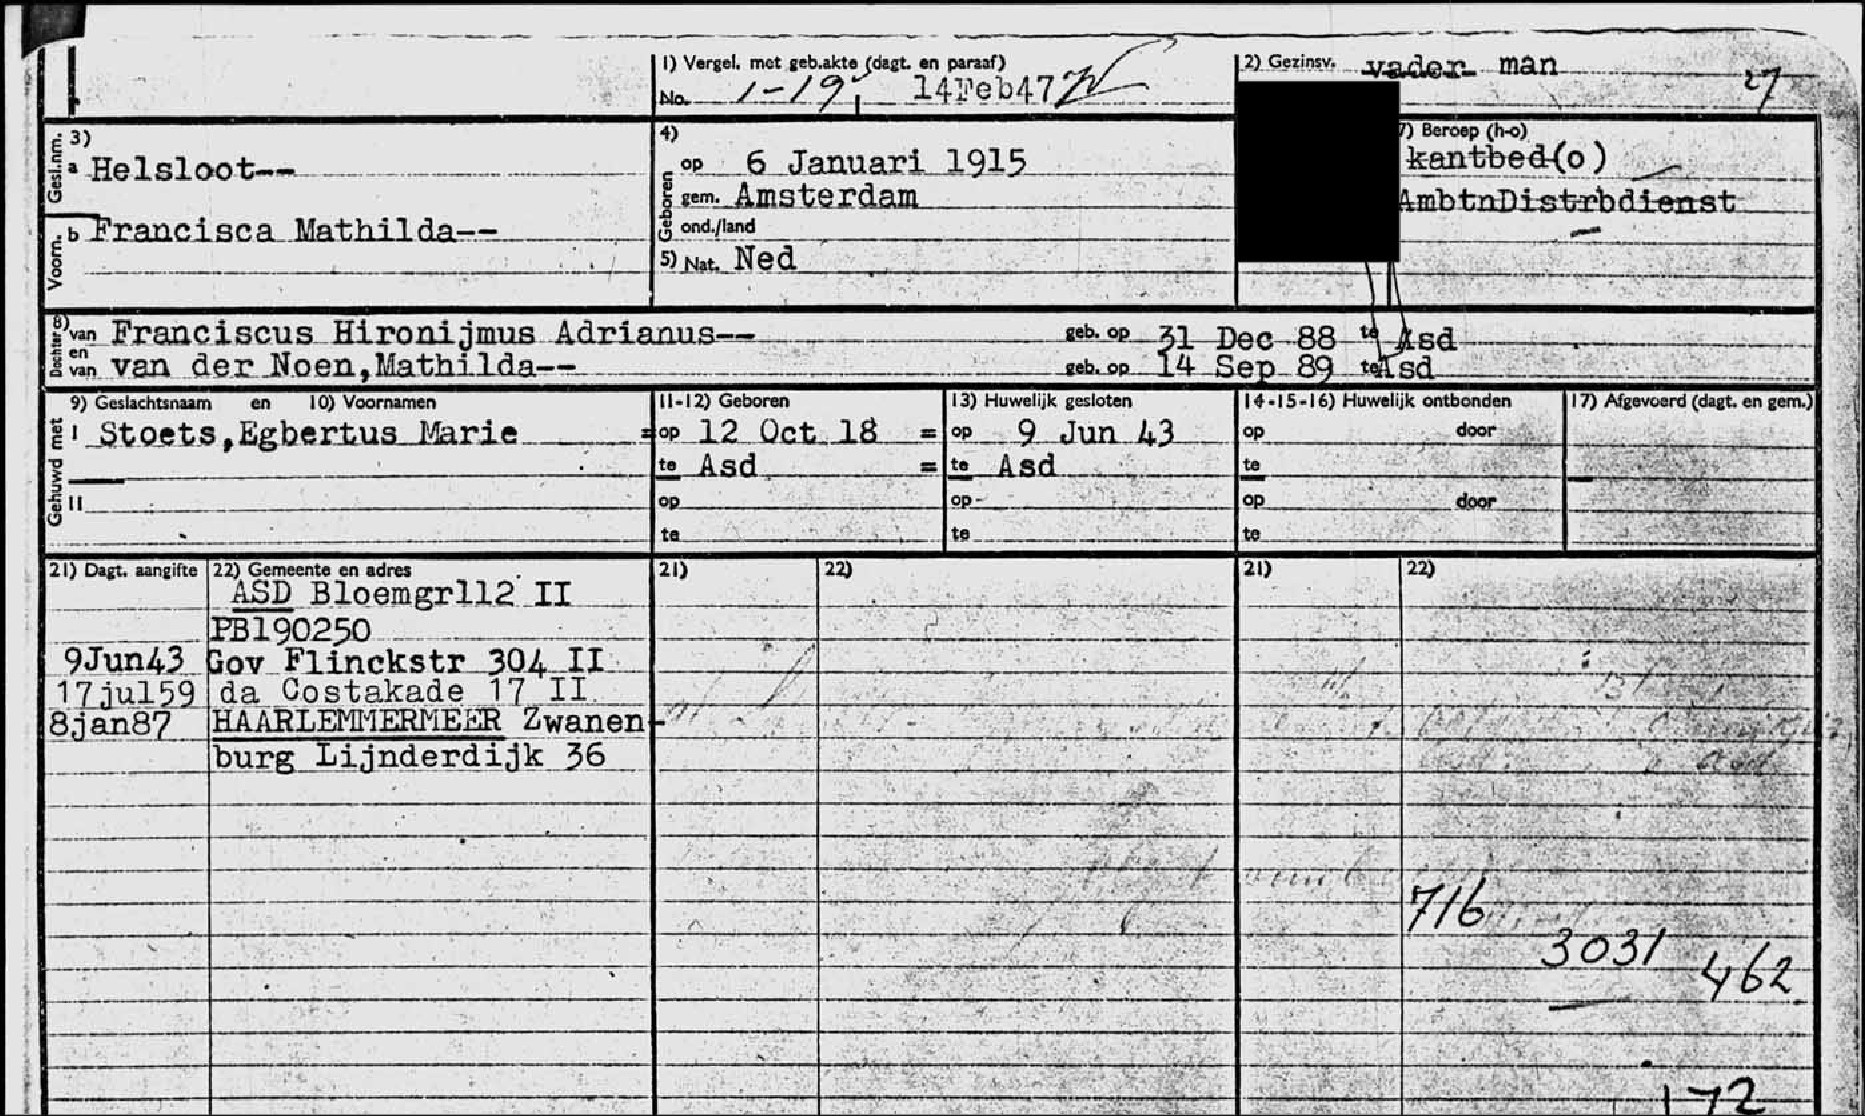 1) Vergel. met geb.akte (dagt. en paraaf)
No. 1-19 14Feb47
2) Gezinsv. vader man
27
Gesl.nm. 3)
a Helsloot--
Voorn. b Francisca Mathilda--
4)
Geboren
op 6 Januari 1915
gem. Amsterdam
ond./land
5) Nat. Ned
7) Beroep (h-o)
kantbed(o)
AmbtnDistrbdienst
Dochter 8) van Franciscus Hironijmus Adrianus-- geb. op 31 Dec 88 te Asd
en van van der Noen,Mathilda-- geb. op 14 Sep 89 te Asd
Gehuwd met
9) Geslachtsnaam en 10) Voornamen
11-12) Geboren
13) Huwelijk gesloten
14-15-16) Huwelijk ontbonden
17) Afgevoerd (dagt. en gem.)
I Stoets,Egbertus Marie = op 12 Oct 18 = op 9 Jun 43 op door
te Asd = te Asd te
II op op door
te te te
21) Dagt. aangifte 22) Gemeente en adres 21) 22) 21) 22)
ASD Bloemgr112 II
PB190250
9Jun43 Gov Flinckstr 304 II
17jul59 da Costakade 17 II
8jan87 HAARLEMMERMEER Zwanen-
burg Lijnderdijk 36
716
3031
462
172